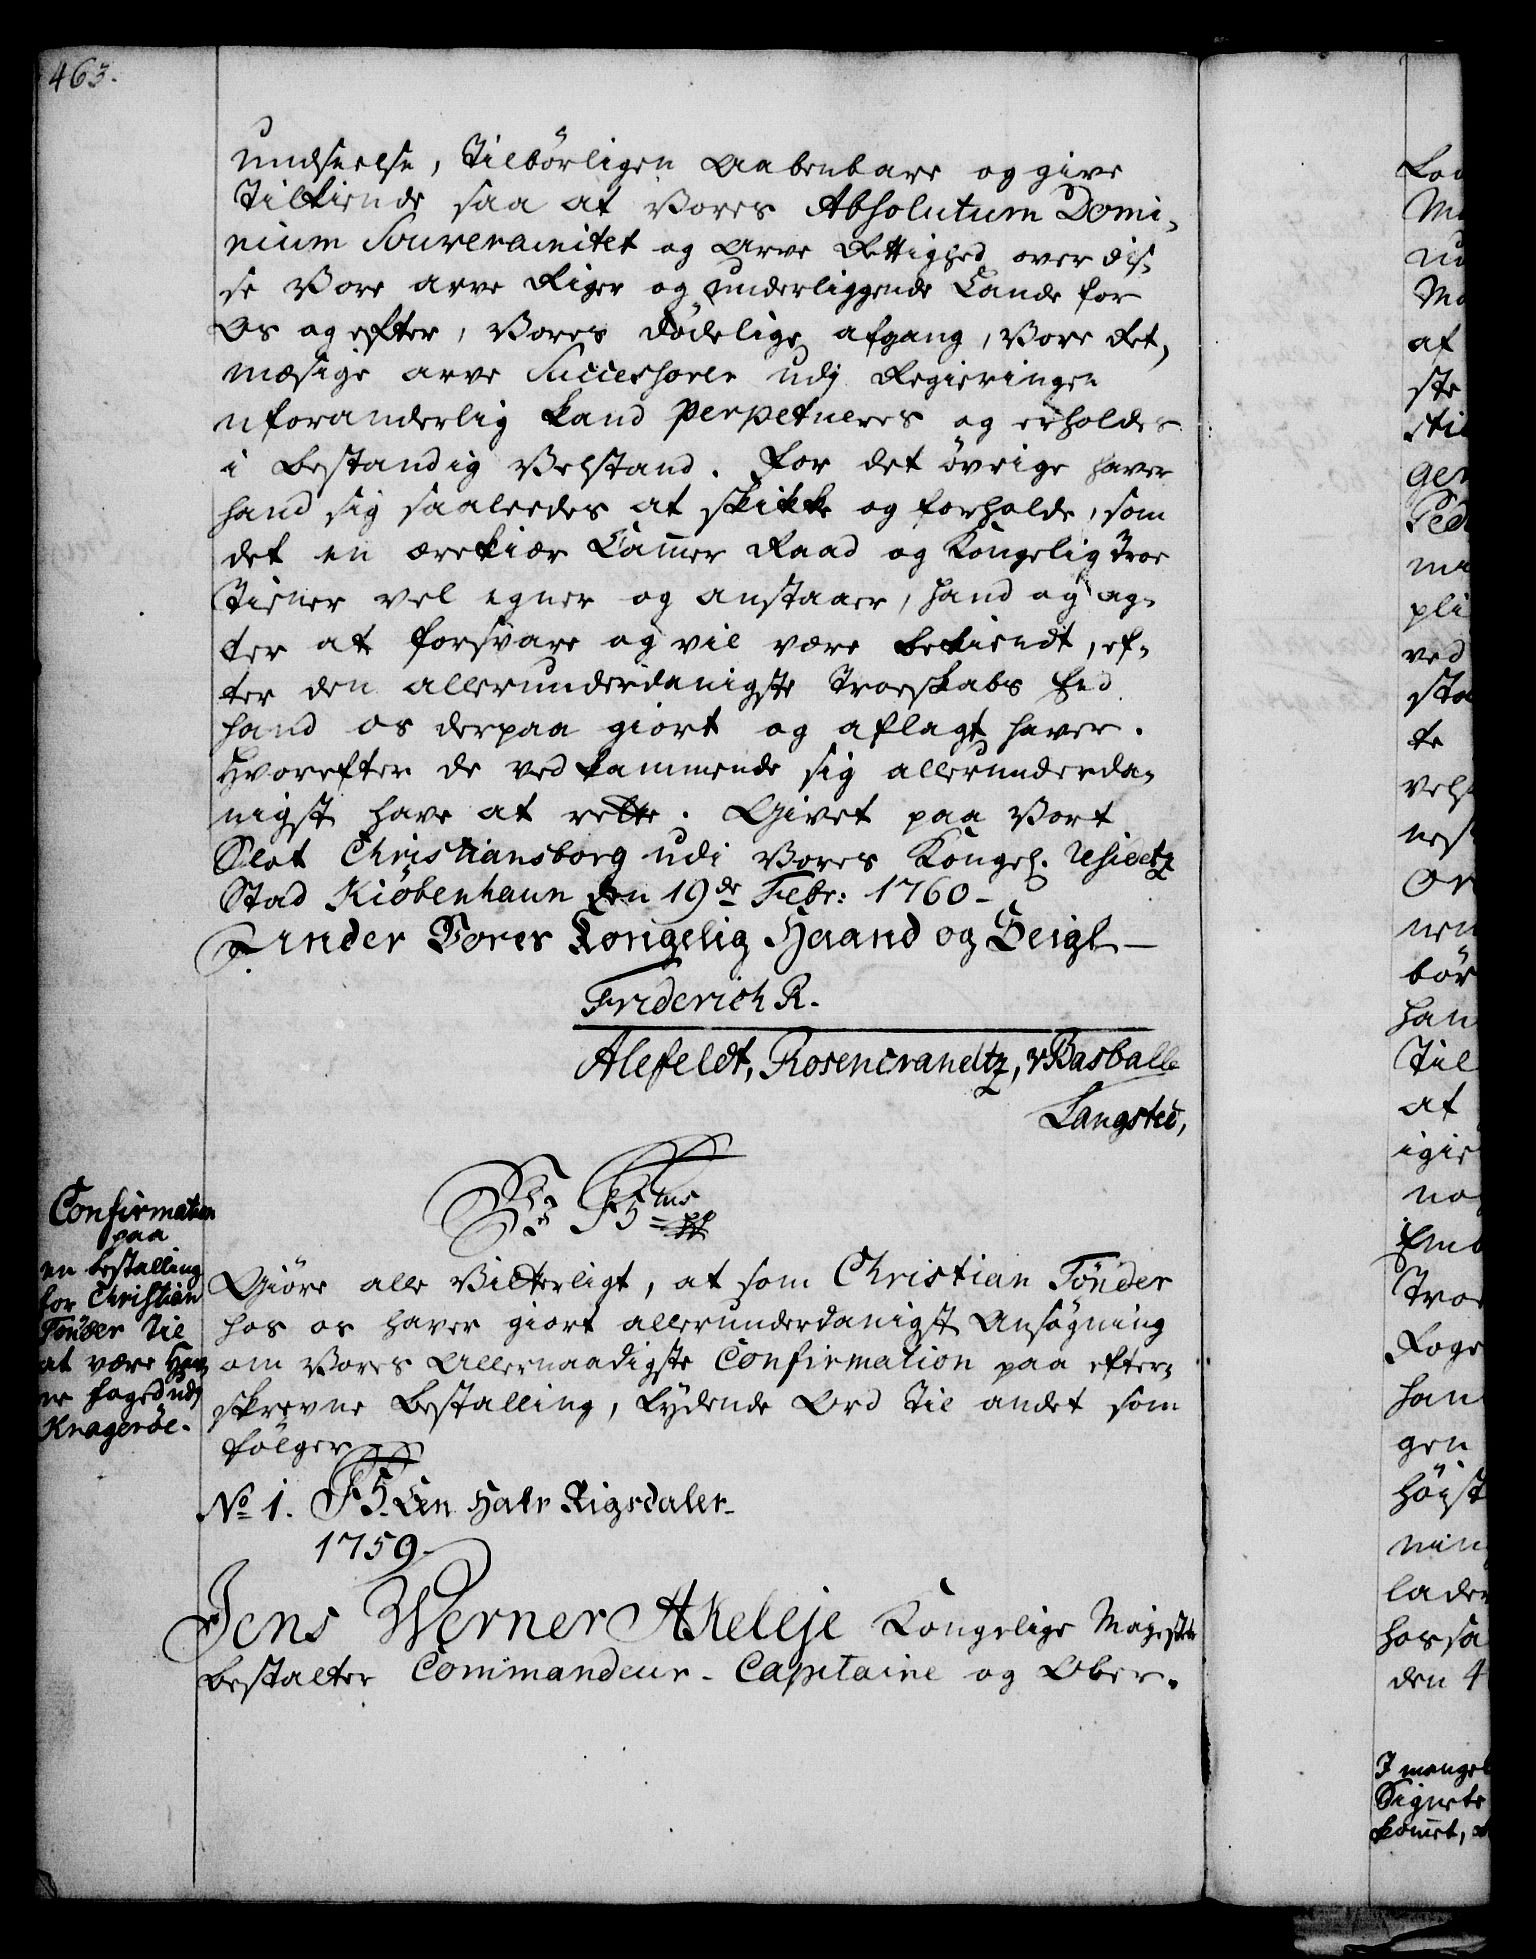 463.
undseelse, Tilbörligen Aabenbare og give
Tilkiende saa at Vores Absolutum Domi-
nium Souverainitet og Arve Rettighed over dis-
se Vore arve Riger og underliggende Lande for
Os og efter, Vores dödelige afgang, Vore Ret,
mæsige arve Successorer udj Regieringen
uforanderlig kand perpetueres og erholdes
i bestandig Velstand. For det övrige haver
hand sig saaledes at skikke og forholde, som
det en ærekiær Cam̄er Raad og Kongelig Troe
Tiener vel egner og anstaaer, hand og ag-
ter at forsvare og vil være bekiendt, ef-
ter den allerunderdanigste Troeskabs Eed
hand os derpaa giort og aflagt haver.
Hvorefter de vedkommende sig allerunderda-
nigst have at rette. Givet paa Vort
Slot Christiansborg udi Vores Kongel.
Stad Kiöbenhaun den 19de Febr: 1760-
Under Vores Kongelig Haand og Seigl-
Friderich R.
Alefeldt, Rosencrandtz, v Basballe
Langsted,
Confirmation
paa
en bestalling
for Christian
Tönder til
at være Hav-
ne foged udj
Krageröe.
F5tus
Giöre alle Vitterligt, at som Christian Tönder
hos os haver giort allerunderdanigst Ansögning
om Vores Allernaadigste Confirmation paa efter-
skrevne bestalling, Lydende Ord til andet som
fölger
No 1. F5. Een Halv Rigsdaler-
1759-
Jens Werner Akeleje Kongelige Majestets
bestalter Commandeur-Capitaine og Ober-
af
ste
ved
te
bör
Til
at
gen
den 4
I mangel
Signets